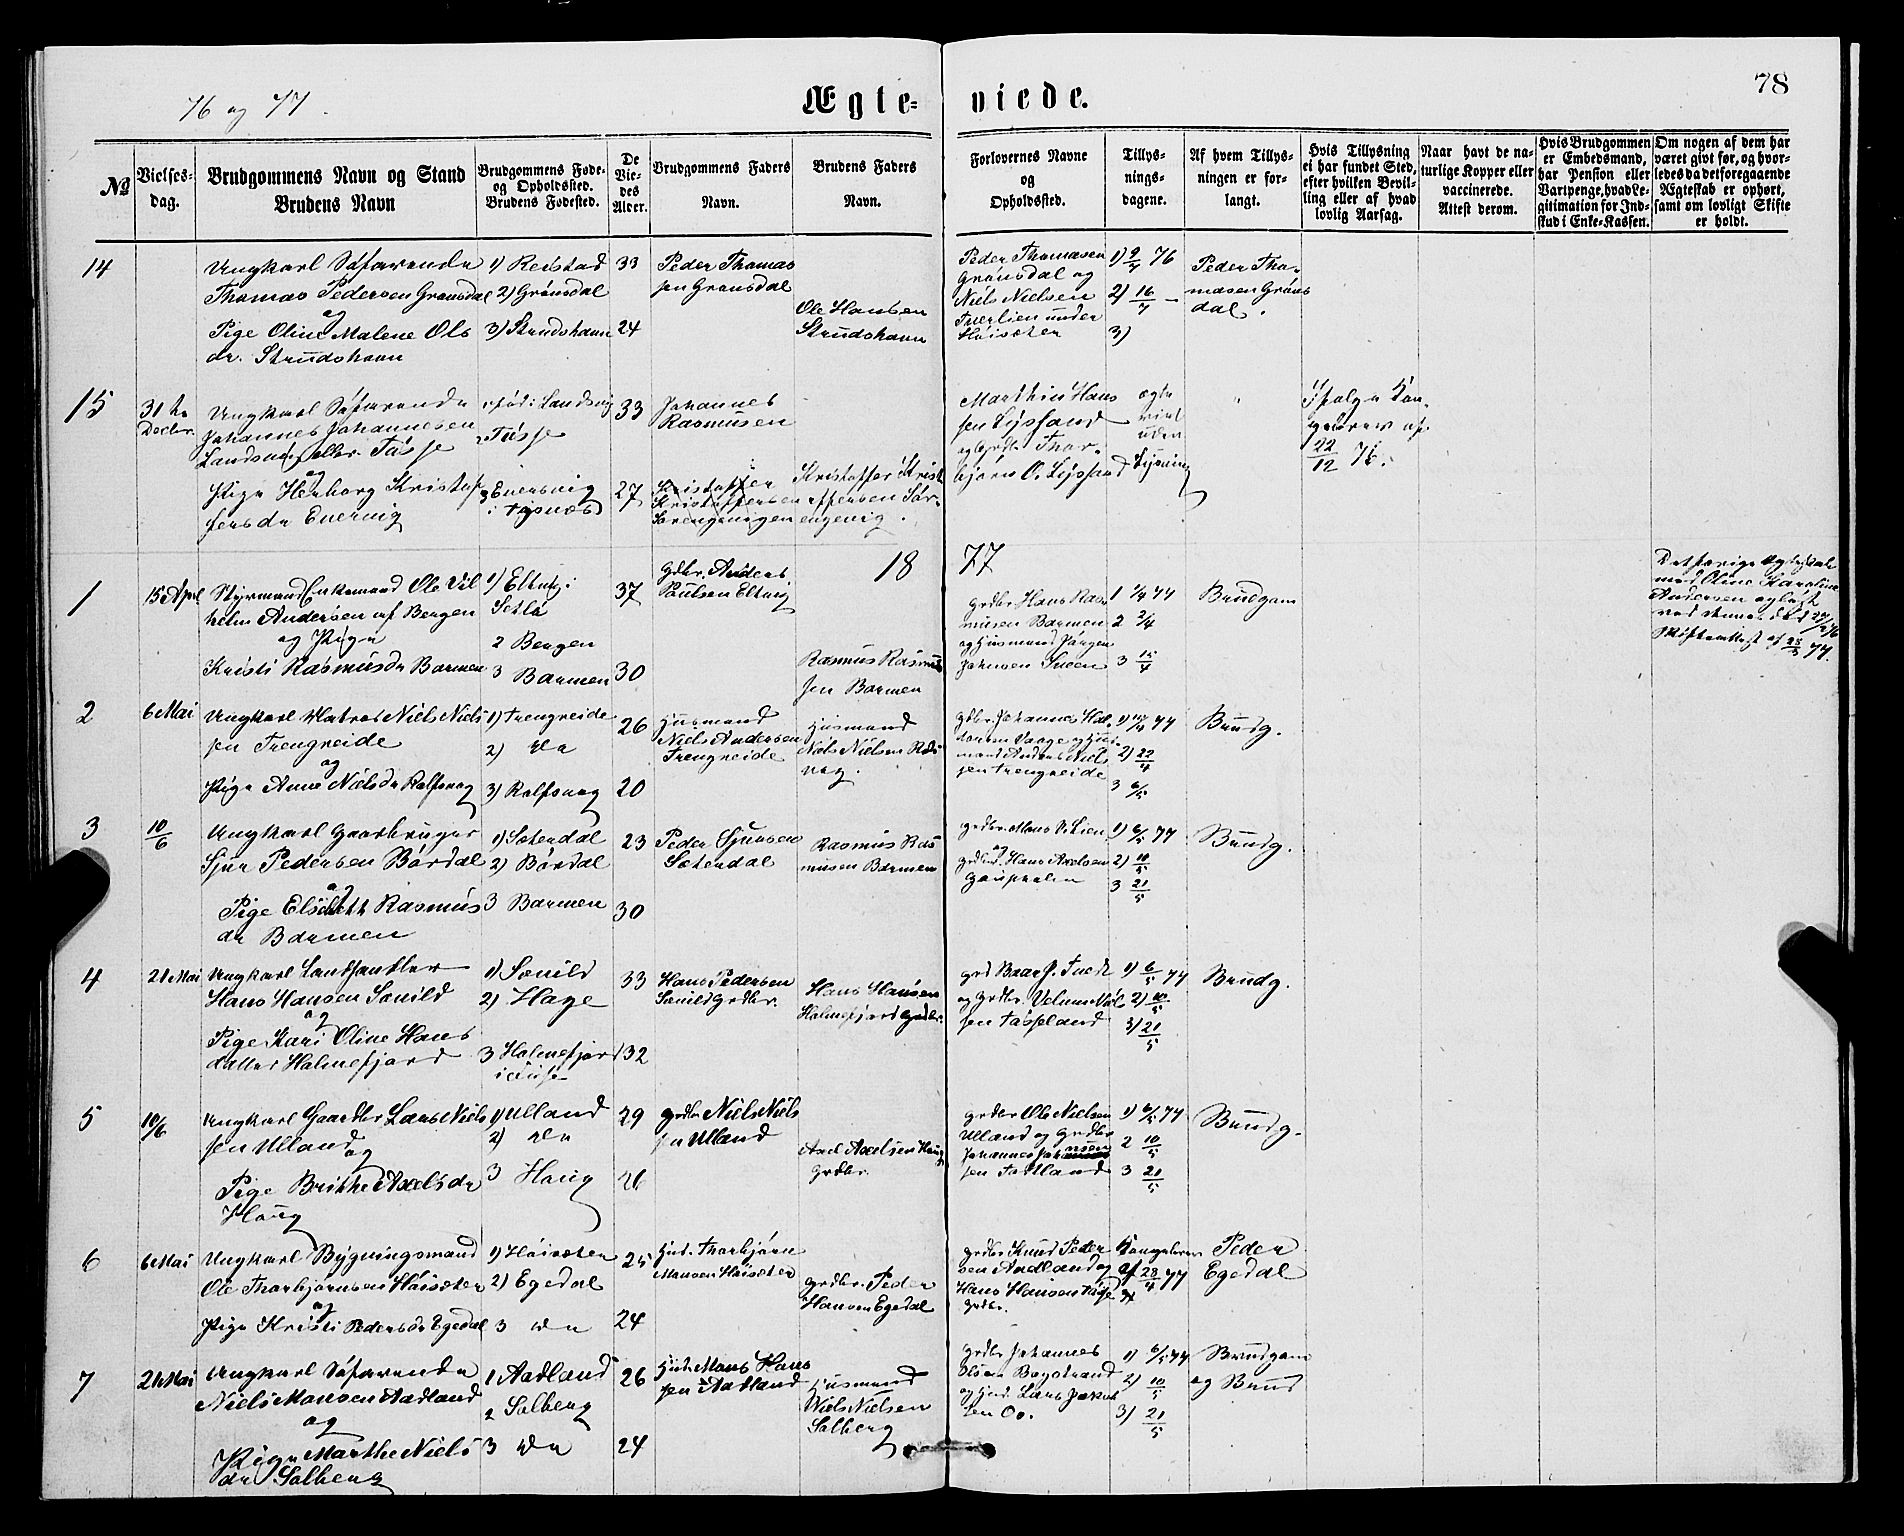 76 og 77.
Ægte-
viede.
78
No
Vielses-
dag.
Brudgommens Navn og Stand
Brudens Navn
Brudgommens Føde-
og Opholdssted.
Brudens Fødested.
De
Vie-
des
Alder.
Brudgommens Faders
Navn.
Brudens Faders
Navn.
Forlovernes Navne
og
Opholdssted.
Tillys-
nings-
dagene.
Af hvem Tillys-
ningen er for-
langt.
Hvis Tillysning
ei har fundet Sted,
efter hvilken Bevil-
ling eller af hvad
lovlig Aarsag.
Naar havt de na-
turlige Kopper eller
vaccinerede.
Attest derom.
Hvis Brudgommen
er Embedsmand,
har Pension eller
Vartpenge, hvad Le-
gitimation for Ind-
skud i Enke-Kassen.
Om nogen af dem har
været givt før, og hvor-
ledes da det foregaaende
Ægteskab er ophørt,
samt om lovligt Skifte
er holdt.
14
Ungkarl Søfarende
Thomas Pedersen Grønsdal
og
Pige Oline Malene Ols
dr. Strudshavn
1) Reistad
2) Grønsdal
3) Strudshavn
33
24
Peder Thomas
sen Grønsdal
Ole Hansen
Strudshavn
Peder Thomasen
Grønsdal og
Niels Nielsen
Tverlien under
Høisæter
1) 9/7 76
2) 16/7 –
3)
Peder Tho-
masen Grøns
dal.
15
31te
Decbr.
Ungkarl Søfarende
Johannes Johannesen
Landsvig eller Tøsse
og
Pige Herborg Kristof
fersdr Enersvig
1 fød i Landsvig
2 Tøsse
3 Enersvig
i Tysnæs
33
27
Johannes
Rasmusen
Kristoffer
Kristoffersen
Kristoffer Krist
offersen Sør-
engevig.
Marthin Hans
sen Lysfand
og Grdbr. Thor-
bjørn O. Lysfand
ægte
viet
uden
Lysning
Ifølge Kon-
gebrev af
22/12 76.
18
77
1
15 April
Styrmand Enkemand Ole Vil
helm Andersen af Bergen
og Pige
Kristi Rasmusdr Barmen
1) Eltvig i
2 Bergen
3 Barmen
37
30
Gdbr. Anders
Paulsen Eltvig
Rasmus Rasmus
sen Barmen
grdbr Hans Ras
musen Barmen
og Husmand Jørgen
Johnsen Sneen
1 1/4 77
2 2/4
3 15/4
Brudgom
Det forrige Ægteskab
med Oline Karoline
Andersen opløst
ved dennes død
Skifteattest af 77.
2
6 Mai
Ungkarl Matros Niels Niels
sen Trengreide
og
Pige Anne Nielsdr Rolfsvag
1) Trengreide
2) do
3) Rolfsvag
26
20
Husmand
Niels Andersen
Trengreide
Husmand
Niels Nielsen
vag.
gdbr. Johannes
Vaage og Hus-
mand Anders Niels
sen Trengreide
1) 77
2) 22/4
3 6/5
Brudg.
3
10/6
Ungkarl Gaardbruger
Sjur Pedersen Børdal
og
Pige Elsebeth Rasmus
dr Barmen
1) Sætendal
2) Børdal
3 Barmen
23
30
Peder Sjursen
Sætendal
Rasmus Ras
musen Barmen
grdbr. Mons Lien
og
grdbr. Hans Axelsen
Gaupholm
1) 6/5 77
2) 10/5
3 21/5
Brudg.
4
21 Mai
Ungkarl Landhandler
Hans Hansen Søvild
og
Pige Kari Oline Hans
datter Holmefjord
1) Søvild
2) Hage
3 Holmefjord
33
32
Hans Pedersen
Søvild Grdbr.
Hans Hansen
Holmefjord Grdbr.
grd
og Grdbr.
sen Tøsseland
1) 6/5 77
2) 10/5
3) 21/5
Brudg.
5
10/6
Ungkarl Gaardbr Lars Niels
sen Ulland
og
Pige Brithe Axelsdr
Houg
1) Ulland
2) do
3 Houg
29
26
grdbr Niels Niels
sen Ulland
Axel Axelsen Houg
Grdbr.
grdbr Ole Nielsen
Ulland og Grdbr
Johannes Johannes
sen
1) 6/5 77
2 10/5
3 21/5
Brudg.
6
6 Mai
Ungkarl Bygningsmand
Ole Thorbjørnsen Høisæter
og
Pige Kristi Pedersdr Egedal
1) Høisæter
2) Egedal
3 do
25
24
Hus. Thorbjørn
Monsen Høisæter
grdbr. Peder
Hansen Egedal
grdbr Knud Peder
sen Aadland og
Hans Hansen
Grdbr.
Kongebrev
af 28/4 77
Peder
Egedal
7
21 Mai
Ungkarl Søfarende
Niels Monsen Aadland
og
Pige Marthe Niels
dr Solberg
1 Aadland
2 Solberg
3 do
26
24
Hus. Mons Hans
sen Aadland
Husmand
Niels Nielsen
Solberg
grdbr Johannes
Olsen Bogstrand
og Hus. Lars Jakob
sen Oo.
1) 6/5 77
2) 10/5
3) 21/5
Brudgom
og Brud